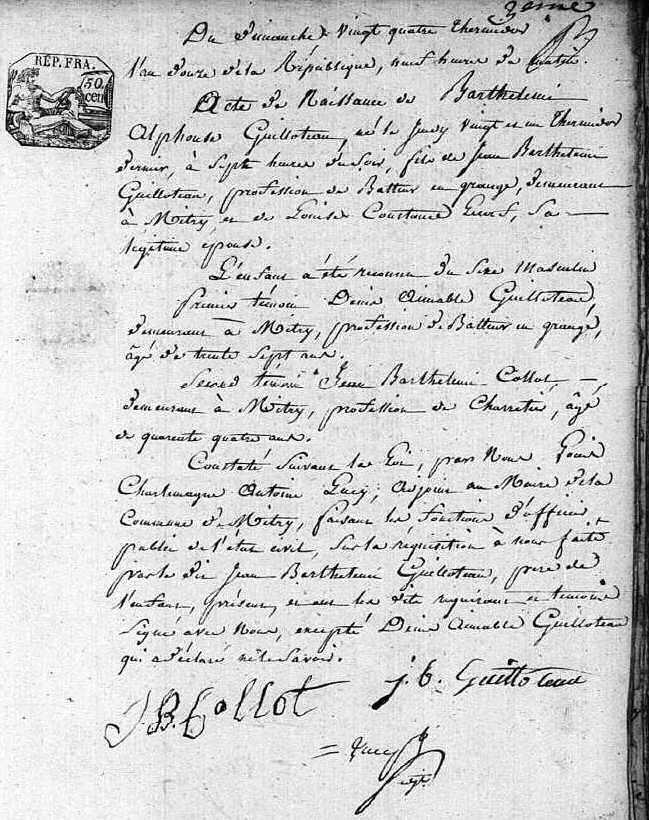 Du Dimanche Vingt quatre Thermidor
RÉP. FRA.
50 cen
l'an Douze de la République, neuf heures du matin.
Acte de Naissance de Barthelemi
Alphonse Guilloteau, né le Jeudy Vingt et un Thermidor
dernier, à Sept heures du Soir, fils de Jean Barthelemi
Guilloteau, profession de Batteur en grange, demeurant
à Mitry, et de Louise Constance, Sa
legitime epouse.
L'enfant a été reconnu du Sexe Masculin
premier témoin Denis Aimable Guilloteau,
demeurant à Mitry, profession de Batteur en grange,
âgé de trente Sept ans.
Second témoin Jean Barthelemi Collot
demeurant à Mitry, profession de Charretier, âgé
de quarente quatre ans.
Constaté Suivant la Loi, par Nous Louis
Charlemagne Antoine, adjoint au Maire de la
Commune de Mitry, faisant les fonctions d'officier
public de l'état civil, Sur la requisition à nous faite
par le dit Jean Barthelemi Guilloteau, pere de
l'enfant, présent, et ont les dits requérant et temoins
Signé avec Nous, excepté Denis Aimable Guilloteau
qui a déclaré ne le Savoir.
J. B. Collot
j. b. Guilloteau